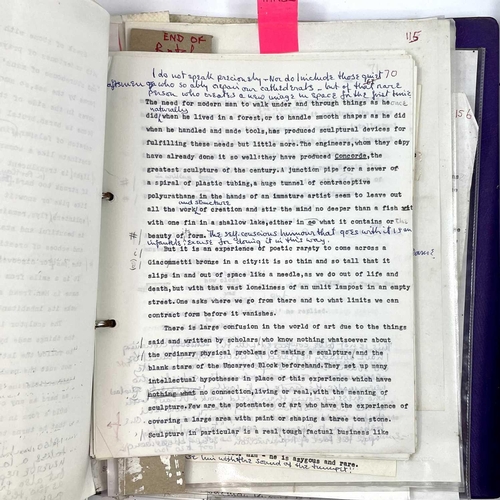 END OF
115
I do not speak preciously - Nor do I include those quiet 70
who so ably repair our cathedrals - but of that rare
person who creates a new image in space for the first time
The need for modern man to walk under and through things as he once
naturally
did, when he lived in a forest, or to handle smooth shapes as he did
when he handled and made tools, has produced sculptural devices for
fulfilling these needs but little more. The engineers, whom they copy
have already done it so well: they have produced Concorde, the
greatest sculpture of the century. A junction pipe for a sewer of
a spiral of plastic tubing, a huge tunnel of contraceptive
polyurathane in the hands of an immature artist seem to leave out
and structure
all the work of creation and stir the mind no deeper than a fish
with one fin in a shallow lake, either in what it contains or
beauty of form. The self-conscious humour that goes with it is an
infantile excuse for doing it in this way.
But it is an experience of poetic rarety to come across a
Giacometti bronze in a city: it is so thin and so tall that it
slips in and out of space like a needle, as we do out of life and
death, but with that vast loneliness of an unlit lampost in an empty
street. One asks where we go from there and to what limits we can
contract form before it vanishes.
There is large confusion in the world of art due to the things
said and written by scholars who know nothing whatsoever about
the ordinary physical problems of making a sculpture and the
blank stare of the Uncarved Block beforehand. They set up many
intellectual hypotheses in place of this experience which have
no connection, living or real, with the meaning of
sculpture. Few are the potentates of art who have the experience of
covering a large area with paint or shaping a three ton stone.
Sculpture in particular is a real tough factual business like
him - he is azygous and rare.
with the sound of the trumpet!